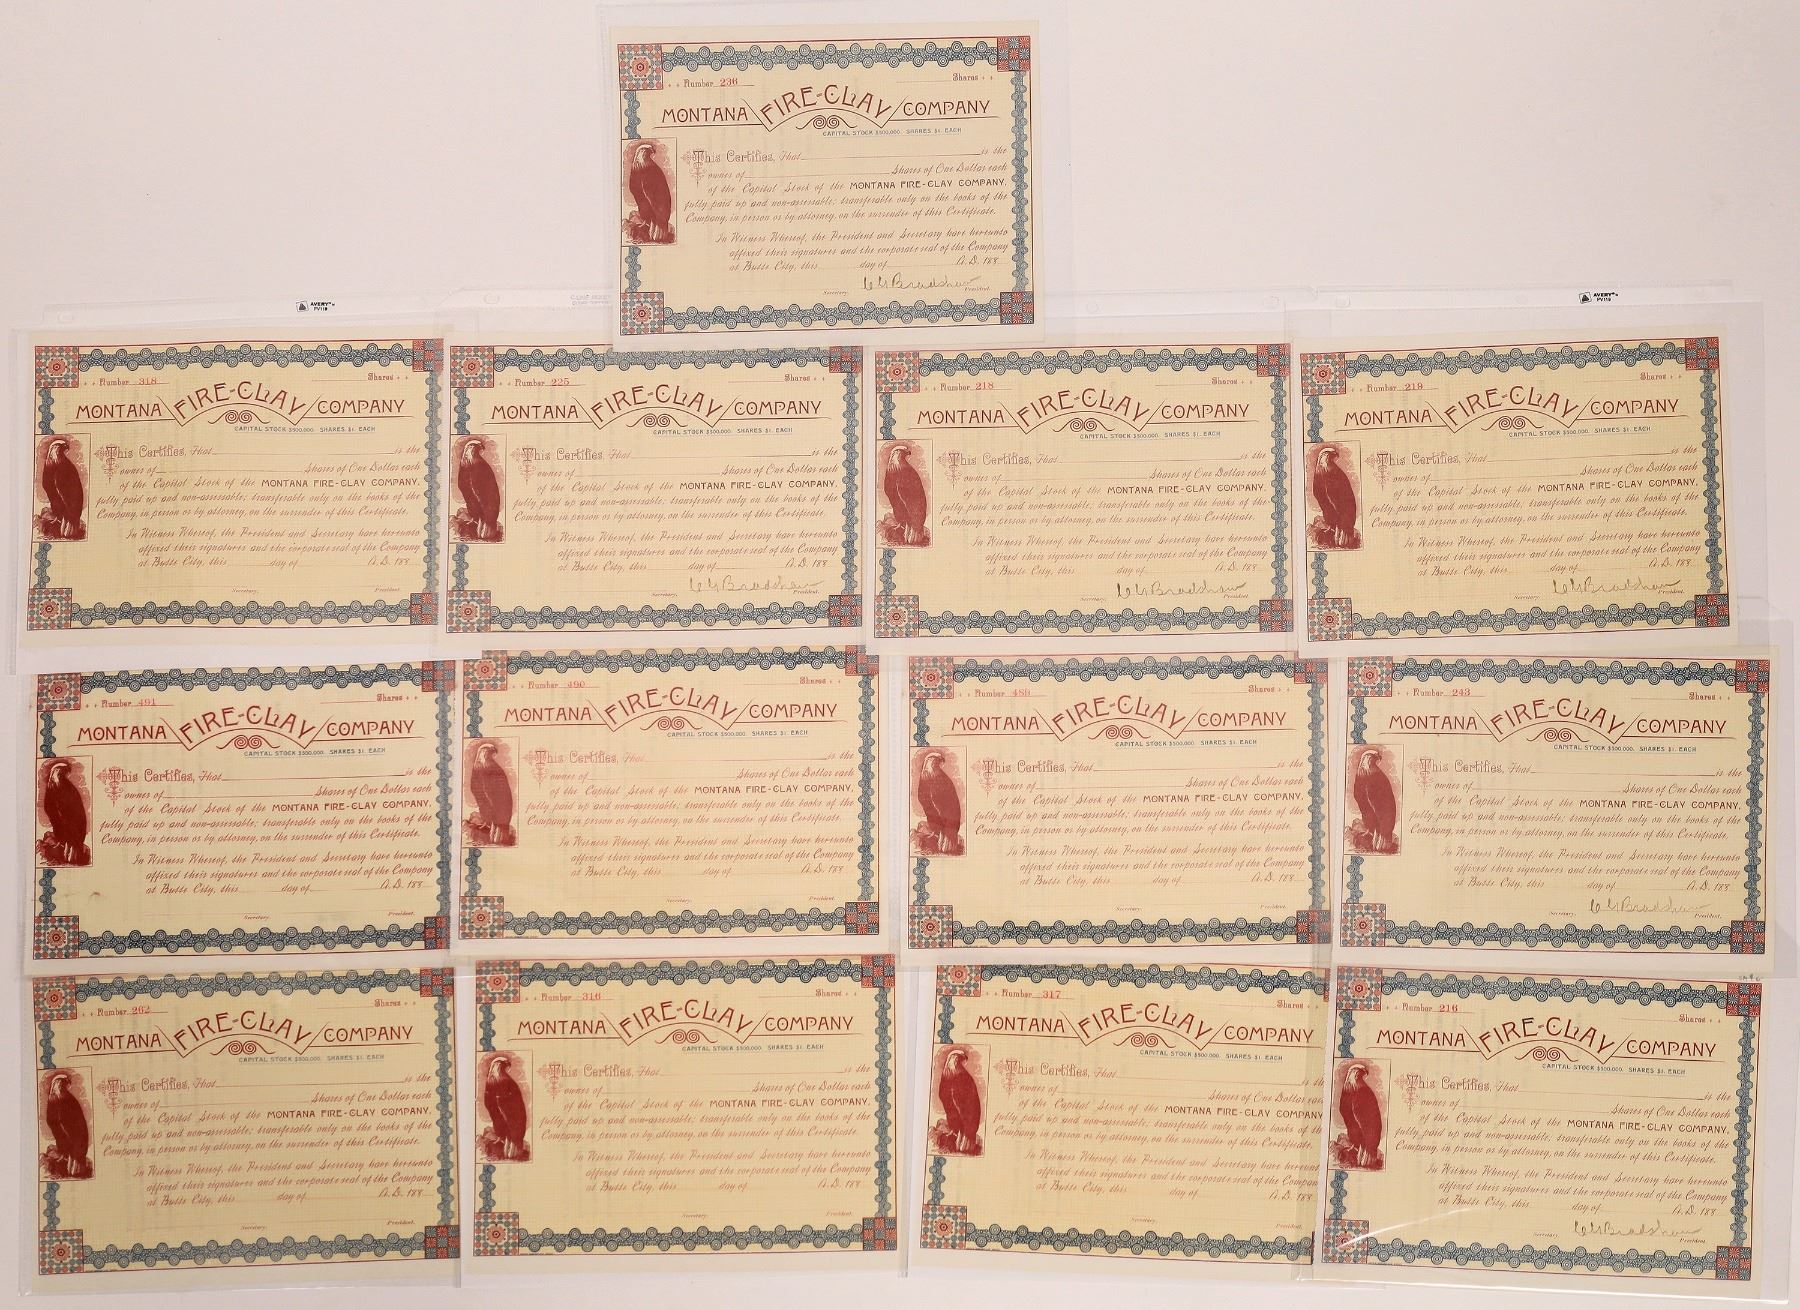 Number 236 Shares
MONTANA FIRE-CLAY COMPANY
CAPITAL STOCK $500,000. SHARES $1. EACH
This Certifies, That is the
owner of Shares of One Dollar each
of the Capital Stock of the MONTANA FIRE-CLAY COMPANY,
fully paid up and non-assessable; transferable only on the books of the
Company, in person or by attorney, on the surrender of this Certificate.
In Witness Whereof, the President and Secretary have hereunto
affixed their signatures and the corporate seal of the Company
at Butte City, this day of A.D. 188
Bradshaw
Secretary. President.
AVERY
PV119
AVERY
PV119
Number 318 Shares
MONTANA FIRE-CLAY COMPANY
CAPITAL STOCK $500,000. SHARES $1. EACH
This Certifies, That is the
owner of Shares of One Dollar each
of the Capital Stock of the MONTANA FIRE-CLAY COMPANY,
fully paid up and non-assessable; transferable only on the books of the
Company, in person or by attorney, on the surrender of this Certificate.
In Witness Whereof, the President and Secretary have hereunto
affixed their signatures and the corporate seal of the Company
at Butte City, this day of A.D. 188
Secretary. President.
Number 225 Shares
MONTANA FIRE-CLAY COMPANY
CAPITAL STOCK $500,000. SHARES $1. EACH
This Certifies, That is the
owner of Shares of One Dollar each
of the Capital Stock of the MONTANA FIRE-CLAY COMPANY,
fully paid up and non-assessable; transferable only on the books of the
Company, in person or by attorney, on the surrender of this Certificate.
In Witness Whereof, the President and Secretary have hereunto
affixed their signatures and the corporate seal of the Company
at Butte City, this day of A.D. 188
Bradshaw
Secretary. President.
Number 218 Shares
MONTANA FIRE-CLAY COMPANY
CAPITAL STOCK $500,000. SHARES $1. EACH
This Certifies, That is the
owner of Shares of One Dollar each
of the Capital Stock of the MONTANA FIRE-CLAY COMPANY,
fully paid up and non-assessable; transferable only on the books of the
Company, in person or by attorney, on the surrender of this Certificate.
In Witness Whereof, the President and Secretary have hereunto
affixed their signatures and the corporate seal of the Company
at Butte City, this day of A.D. 188
Bradshaw
Secretary. President.
Number 219 Shares
MONTANA FIRE-CLAY COMPANY
CAPITAL STOCK $500,000. SHARES $1. EACH
This Certifies, That is the
owner of Shares of One Dollar each
of the Capital Stock of the MONTANA FIRE-CLAY COMPANY,
fully paid up and non-assessable; transferable only on the books of the
Company, in person or by attorney, on the surrender of this Certificate.
In Witness Whereof, the President and Secretary have hereunto
affixed their signatures and the corporate seal of the Company
at Butte City, this day of A.D. 188
Bradshaw
Secretary. President.
Number 491 Shares
MONTANA FIRE-CLAY COMPANY
CAPITAL STOCK $500,000. SHARES $1. EACH
This Certifies, That is the
owner of Shares of One Dollar each
of the Capital Stock of the MONTANA FIRE-CLAY COMPANY,
fully paid up and non-assessable; transferable only on the books of the
Company, in person or by attorney, on the surrender of this Certificate.
In Witness Whereof, the President and Secretary have hereunto
affixed their signatures and the corporate seal of the Company
at Butte City, this day of A.D. 188
Secretary. President.
Number 490 Shares
MONTANA FIRE-CLAY COMPANY
CAPITAL STOCK $500,000. SHARES $1. EACH
This Certifies, That is the
owner of Shares of One Dollar each
of the Capital Stock of the MONTANA FIRE-CLAY COMPANY,
fully paid up and non-assessable; transferable only on the books of the
Company, in person or by attorney, on the surrender of this Certificate.
In Witness Whereof, the President and Secretary have hereunto
affixed their signatures and the corporate seal of the Company
at Butte City, this day of A.D. 188
Secretary. President.
Number 489 Shares
MONTANA FIRE-CLAY COMPANY
CAPITAL STOCK $500,000. SHARES $1. EACH
This Certifies, That is the
owner of Shares of One Dollar each
of the Capital Stock of the MONTANA FIRE-CLAY COMPANY,
fully paid up and non-assessable; transferable only on the books of the
Company, in person or by attorney, on the surrender of this Certificate.
In Witness Whereof, the President and Secretary have hereunto
affixed their signatures and the corporate seal of the Company
at Butte City, this day of A.D. 188
Secretary. President.
Number 243 Shares
MONTANA FIRE-CLAY COMPANY
CAPITAL STOCK $500,000. SHARES $1. EACH
This Certifies, That is the
owner of Shares of One Dollar each
of the Capital Stock of the MONTANA FIRE-CLAY COMPANY,
fully paid up and non-assessable; transferable only on the books of the
Company, in person or by attorney, on the surrender of this Certificate.
In Witness Whereof, the President and Secretary have hereunto
affixed their signatures and the corporate seal of the Company
at Butte City, this day of A.D. 188
Bradshaw
Secretary. President.
Number 262 Shares
MONTANA FIRE-CLAY COMPANY
CAPITAL STOCK $500,000. SHARES $1. EACH
This Certifies, That is the
owner of Shares of One Dollar each
of the Capital Stock of the MONTANA FIRE-CLAY COMPANY,
fully paid up and non-assessable; transferable only on the books of the
Company, in person or by attorney, on the surrender of this Certificate.
In Witness Whereof, the President and Secretary have hereunto
affixed their signatures and the corporate seal of the Company
at Butte City, this day of A.D. 188
Secretary. President.
Number 316 Shares
MONTANA FIRE-CLAY COMPANY
CAPITAL STOCK $500,000. SHARES $1. EACH
This Certifies, That is the
owner of Shares of One Dollar each
of the Capital Stock of the MONTANA FIRE-CLAY COMPANY,
fully paid up and non-assessable; transferable only on the books of the
Company, in person or by attorney, on the surrender of this Certificate.
In Witness Whereof, the President and Secretary have hereunto
affixed their signatures and the corporate seal of the Company
at Butte City, this day of A.D. 188
Secretary. President.
Number 317 Shares
MONTANA FIRE-CLAY COMPANY
CAPITAL STOCK $500,000. SHARES $1. EACH
This Certifies, That is th
owner of Shares of One Dollar eac
of the Capital Stock of the MONTANA FIRE-CLAY COMPANY
fully paid up and non-assessable; transferable only on the books of th
Company, in person or by attorney, on the surrender of this Certificate.
In Witness Whereof, the President and Secretary have hereunt
affixed their signatures and the corporate seal of the Compan
at Butte City, this day of A.D. 188
Secretary. President.
Number 216 Shares
MONTANA FIRE-CLAY COMPANY
CAPITAL STOCK $500,000. SHARES $1. EACH
This Certifies, That is the
owner of Shares of One Dollar each
of the Capital Stock of the MONTANA FIRE-CLAY COMPANY,
fully paid up and non-assessable; transferable only on the books of the
Company, in person or by attorney, on the surrender of this Certificate.
In Witness Whereof, the President and Secretary have hereunto
affixed their signatures and the corporate seal of the Company
at Butte City, this day of A.D. 188
Bradshaw
Secretary. President.